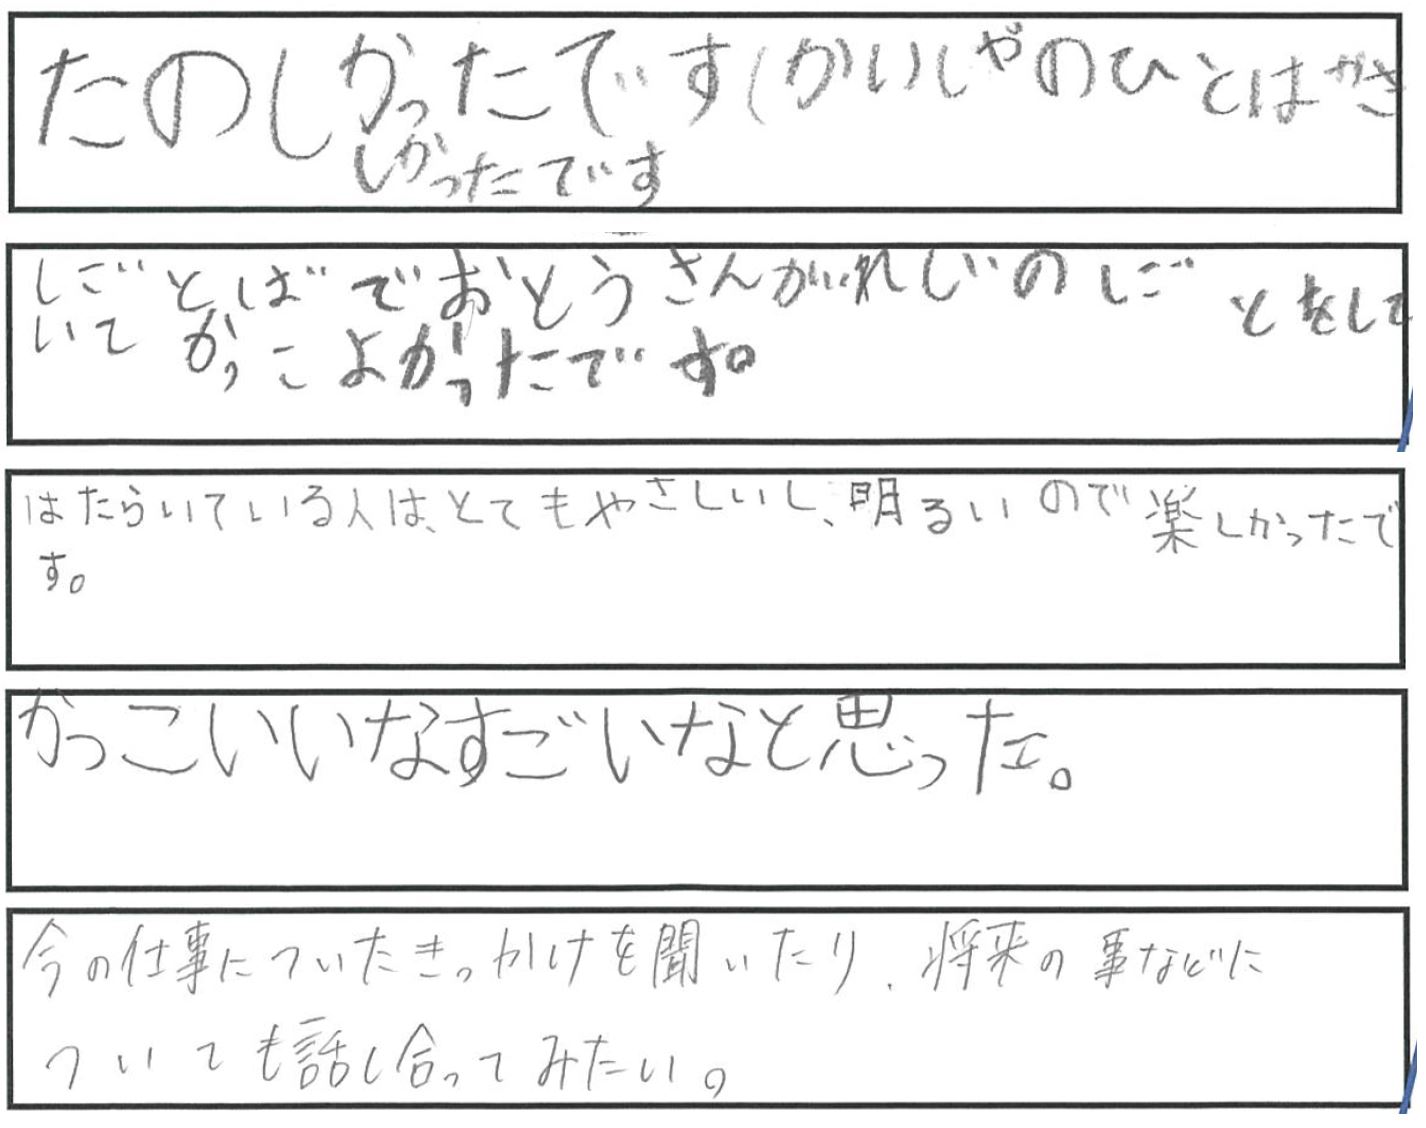 たのしかったです(かいしゃのひとはやさ
しかったです
しごとばでおとうさんがれじのしごとをして
いてかっこよかったです。
はたらいている人は、とてもやさしいし、明るいので楽しかったで
す。
かっこいいなすごいなと思った。
今の仕事についたきっかけを聞いたり、将来の事などに
ついても話し合ってみたい。